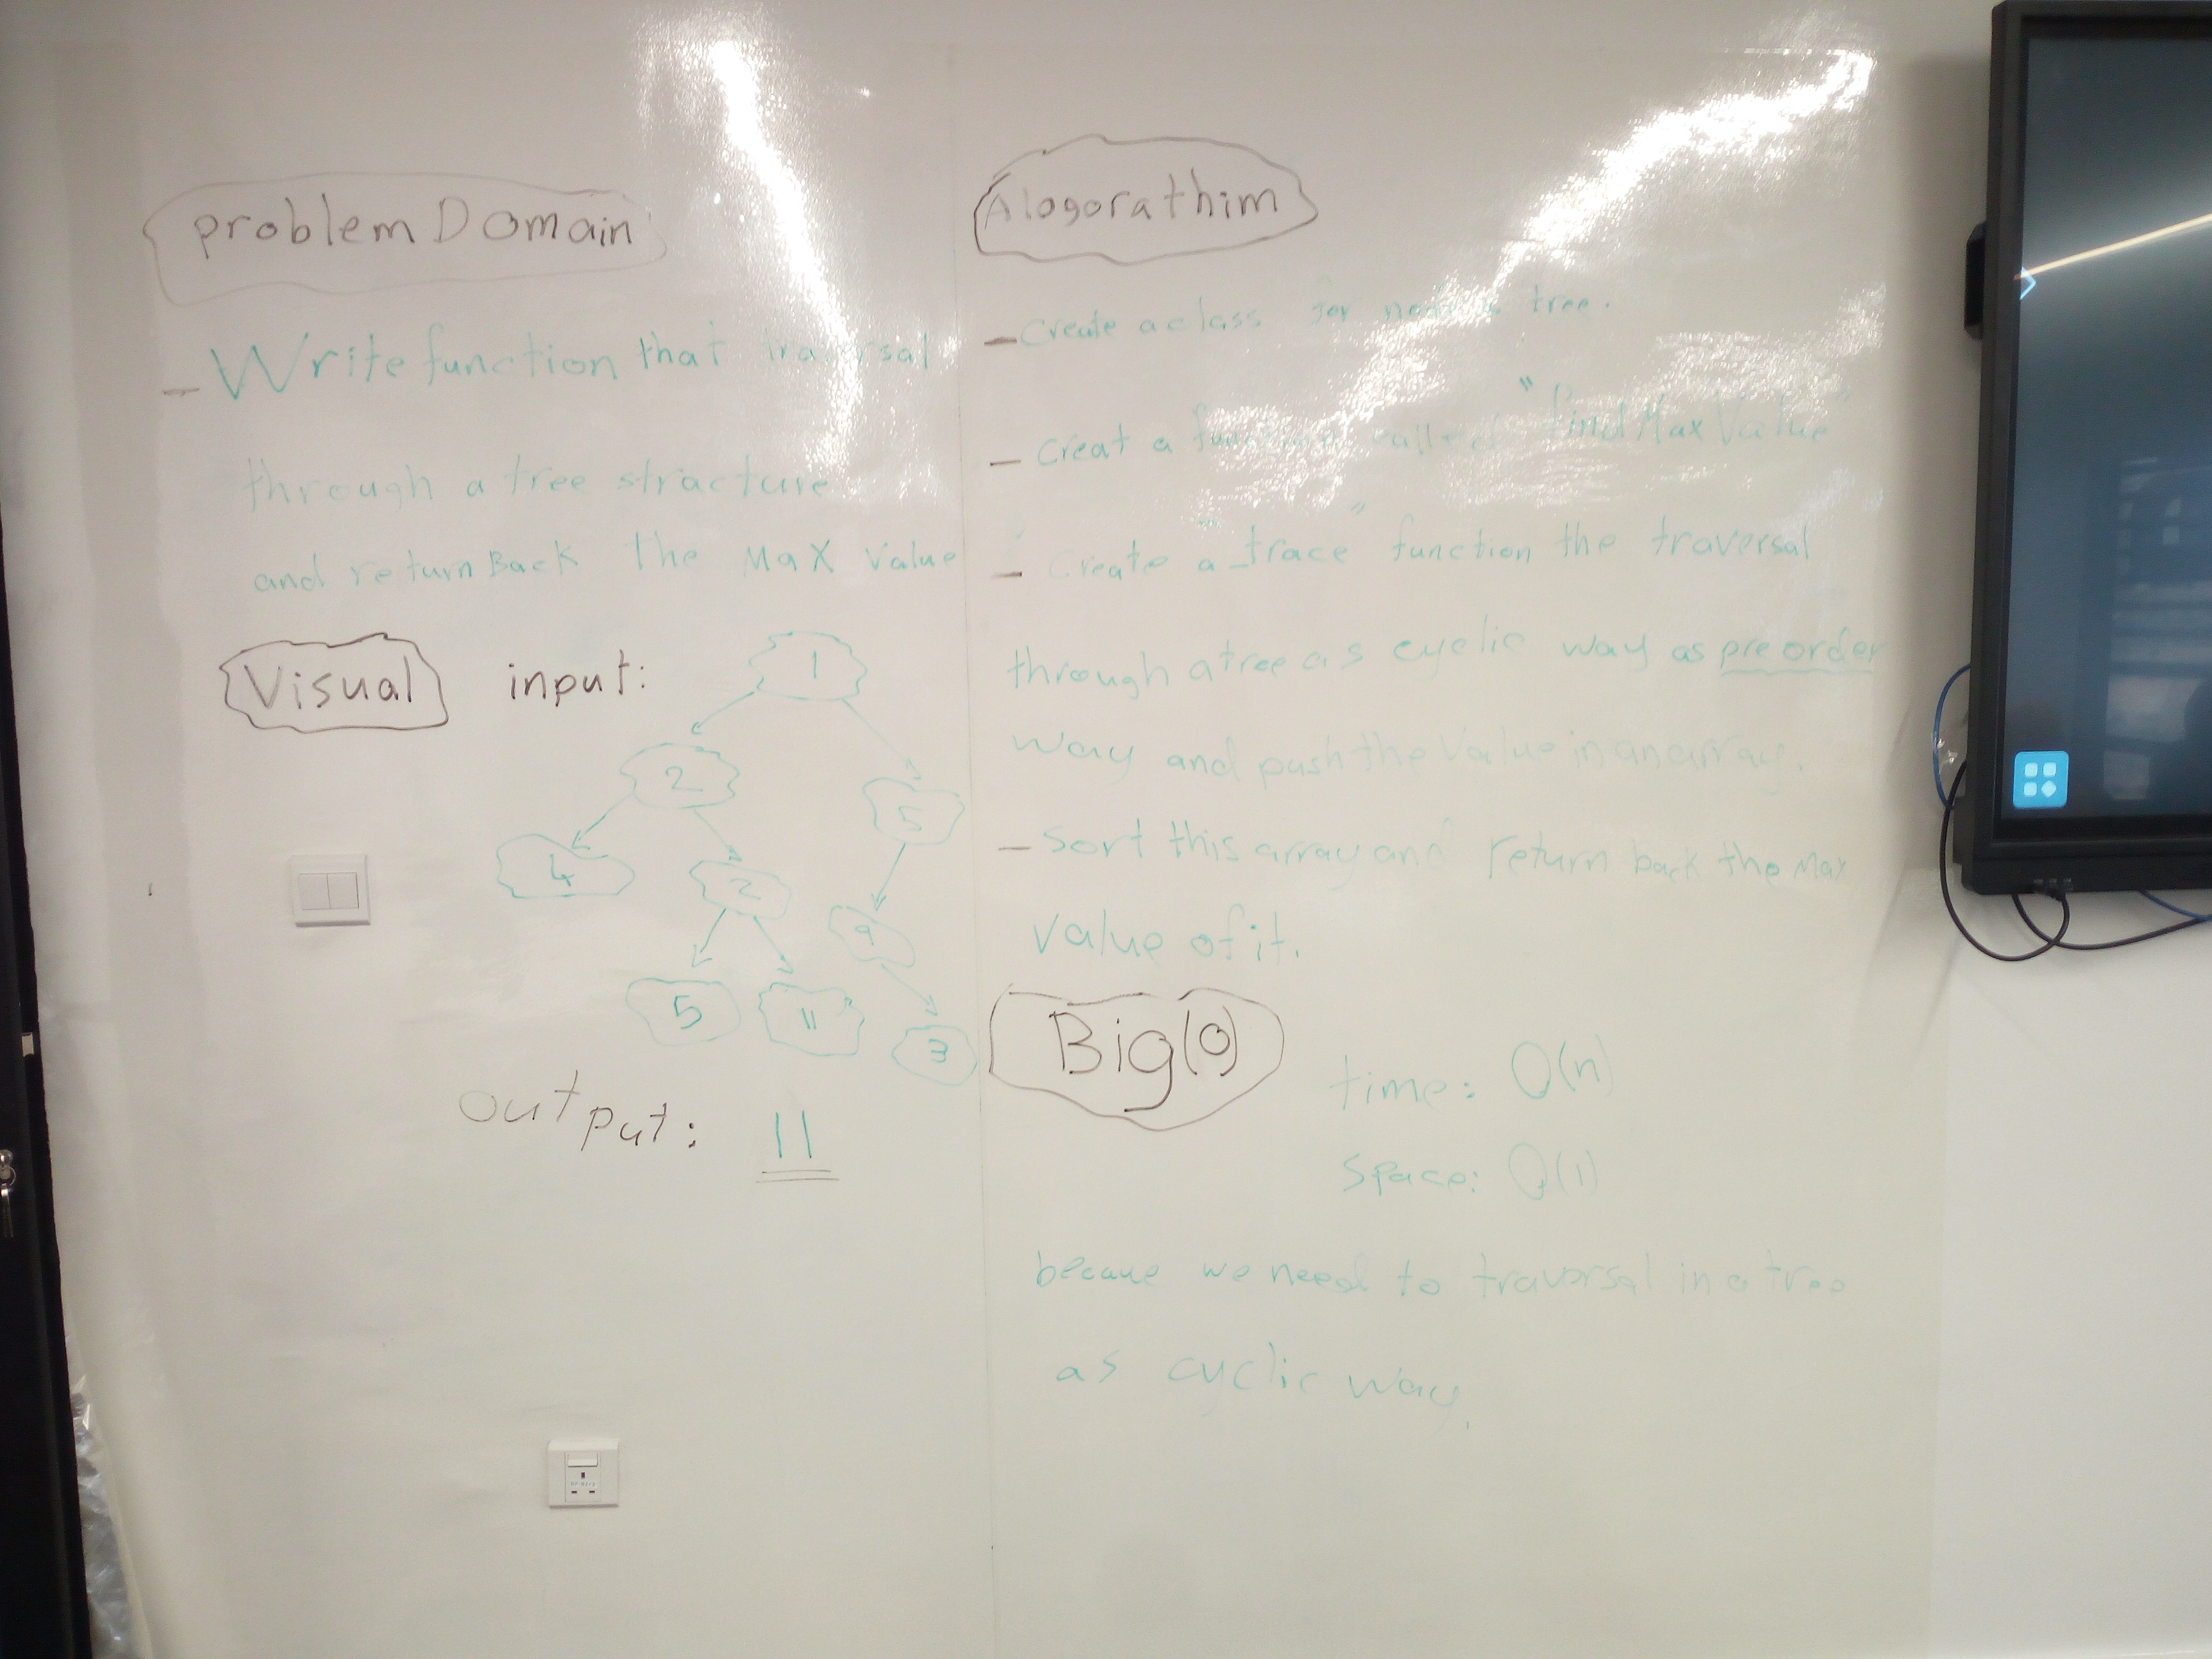 problem Domain
- Write function that traversal
through a tree stracture
and return Back The Max Value
Visual input:
1
2
5
4
2
9
5
11
3
output: 11
Alogorathim
- Create a class for tree.
- Creat a function called "findMaxValue
- Create a "trace" function the traversal
through a tree as cyclic way as preorder
way and push the Value in an array.
- Sort this array and return back the Max
Value of it.
Big(O)
time: O(n)
Space: O(1)
becaue we need to traversal in a tree
as cyclic way.